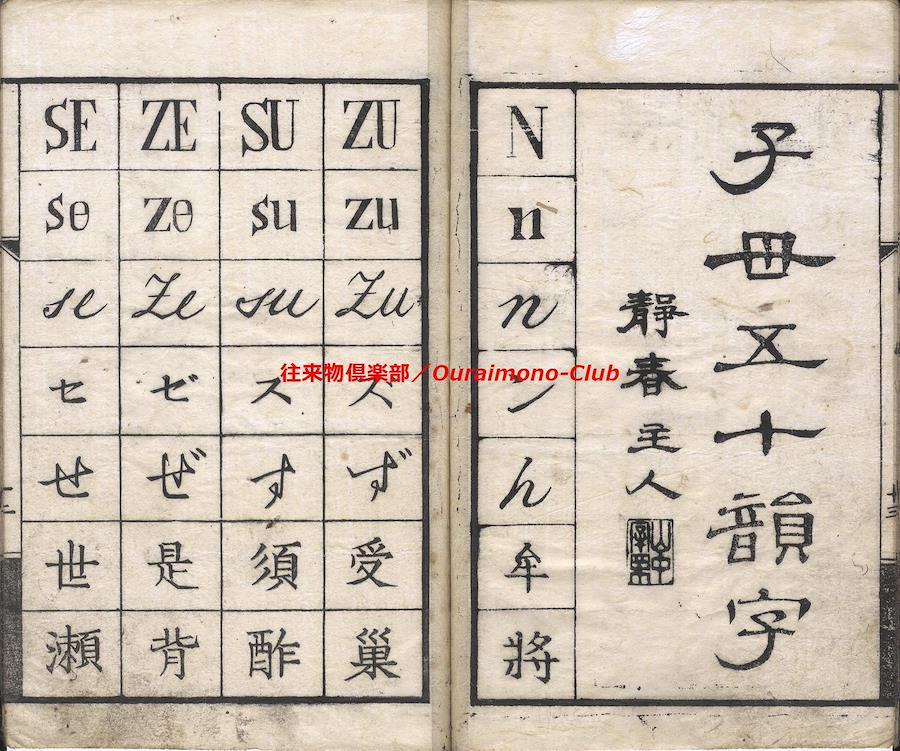 SE ZE SU ZU
se ze su zu
se Ze su Zu
セ ゼ ス ズ
せ ぜ す ず
世 是 須 受
瀬 背 酢 巣
N
n
n
ン
ん
牟
將
子母五十韻字
靜春主人
往来物倶楽部／Ouraimono-Club